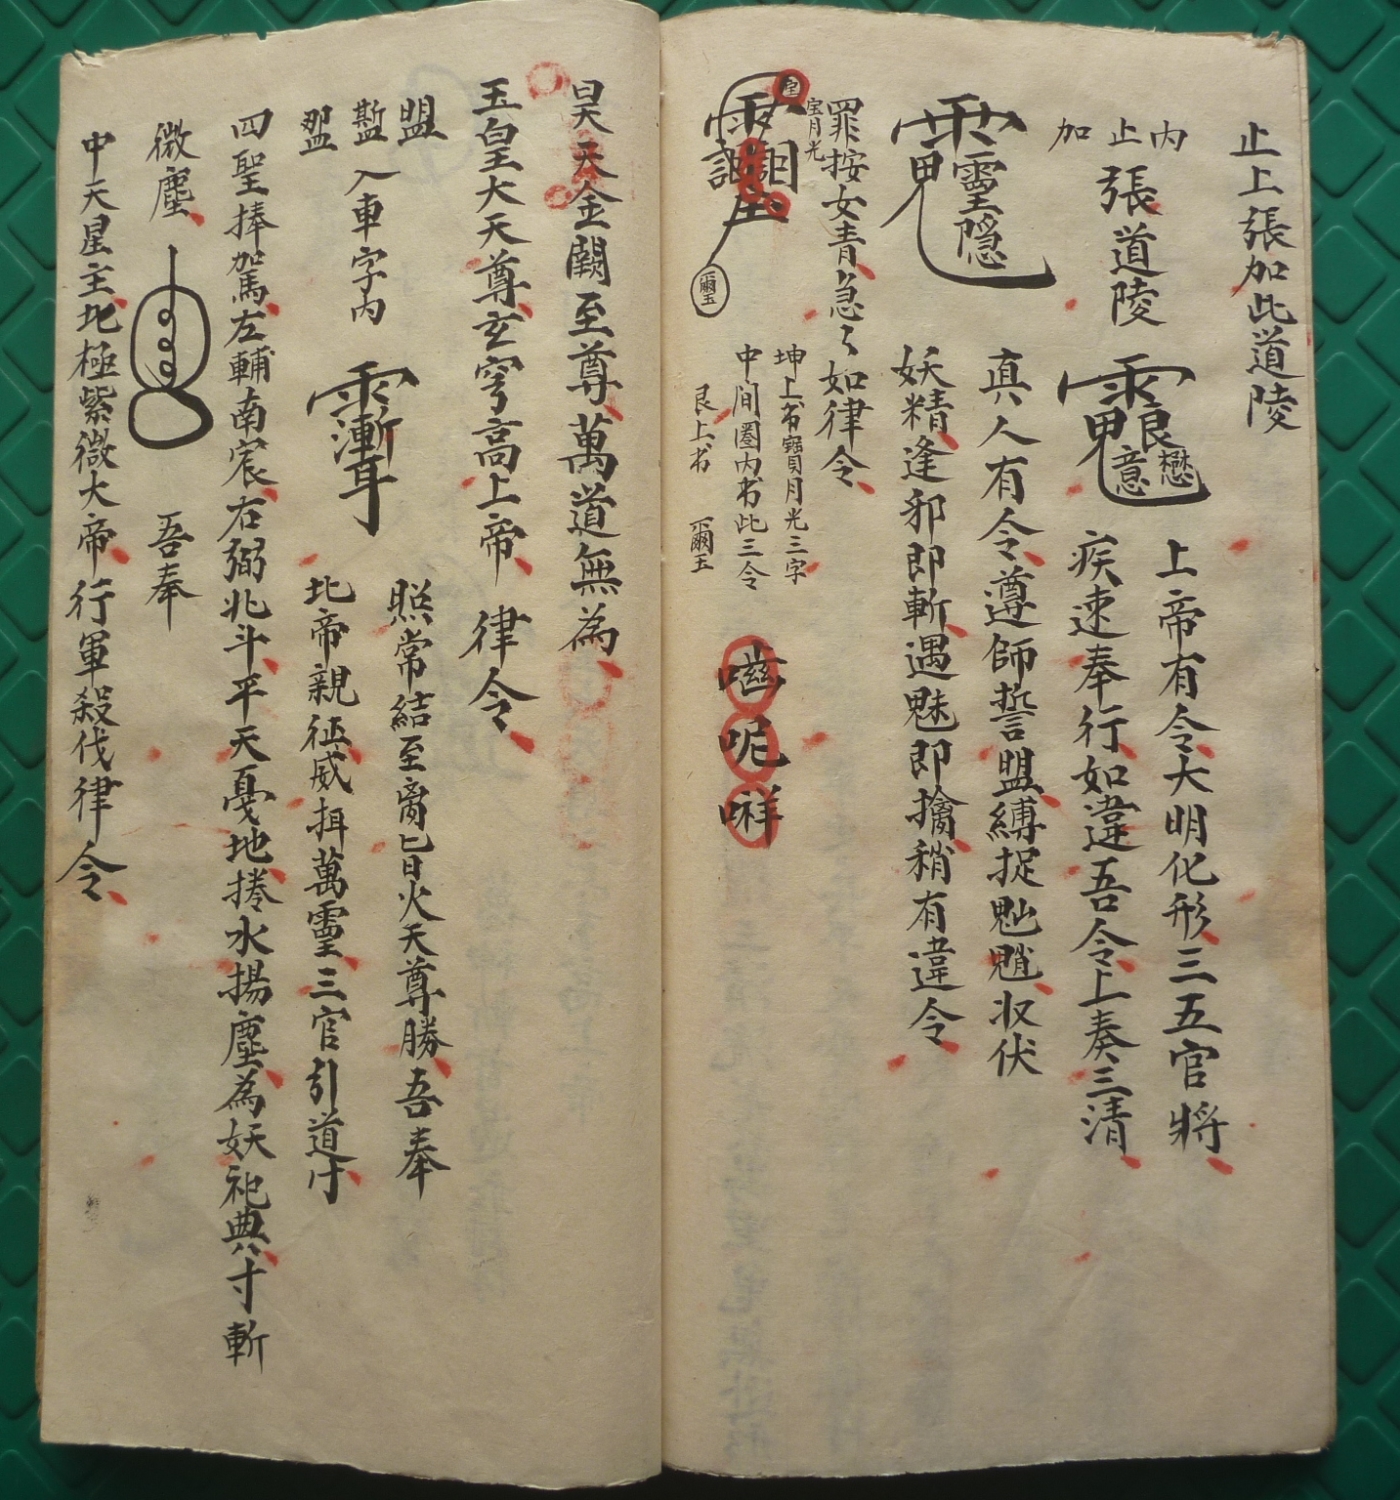 止上張加此道陵
內止加
張道陵
上帝有令大明化形三五官將
疾速奉行如違吾令上奏三清
真人有令遵師誓盟縛捉魑魈收伏
妖精逢邪即斬遇魅即擒稍有違令
罪按女青急々如律令
宝月光
坤上书寶月光三字
中间圈内书此三令
艮上书
嗞呢哶
昊天金闕至尊萬道無為
玉皇大天尊玄穹高上帝 律令
盟
入車字內
照常結至離匕日火天尊勝吾奉
北帝親征威揖萬靈三官引道
四聖捧駕左輔南宸右弼北斗平天憂地捲水揚塵為妖祀典寸斬
微塵
吾奉
中天星主北極紫微大帝行軍殺伐律令